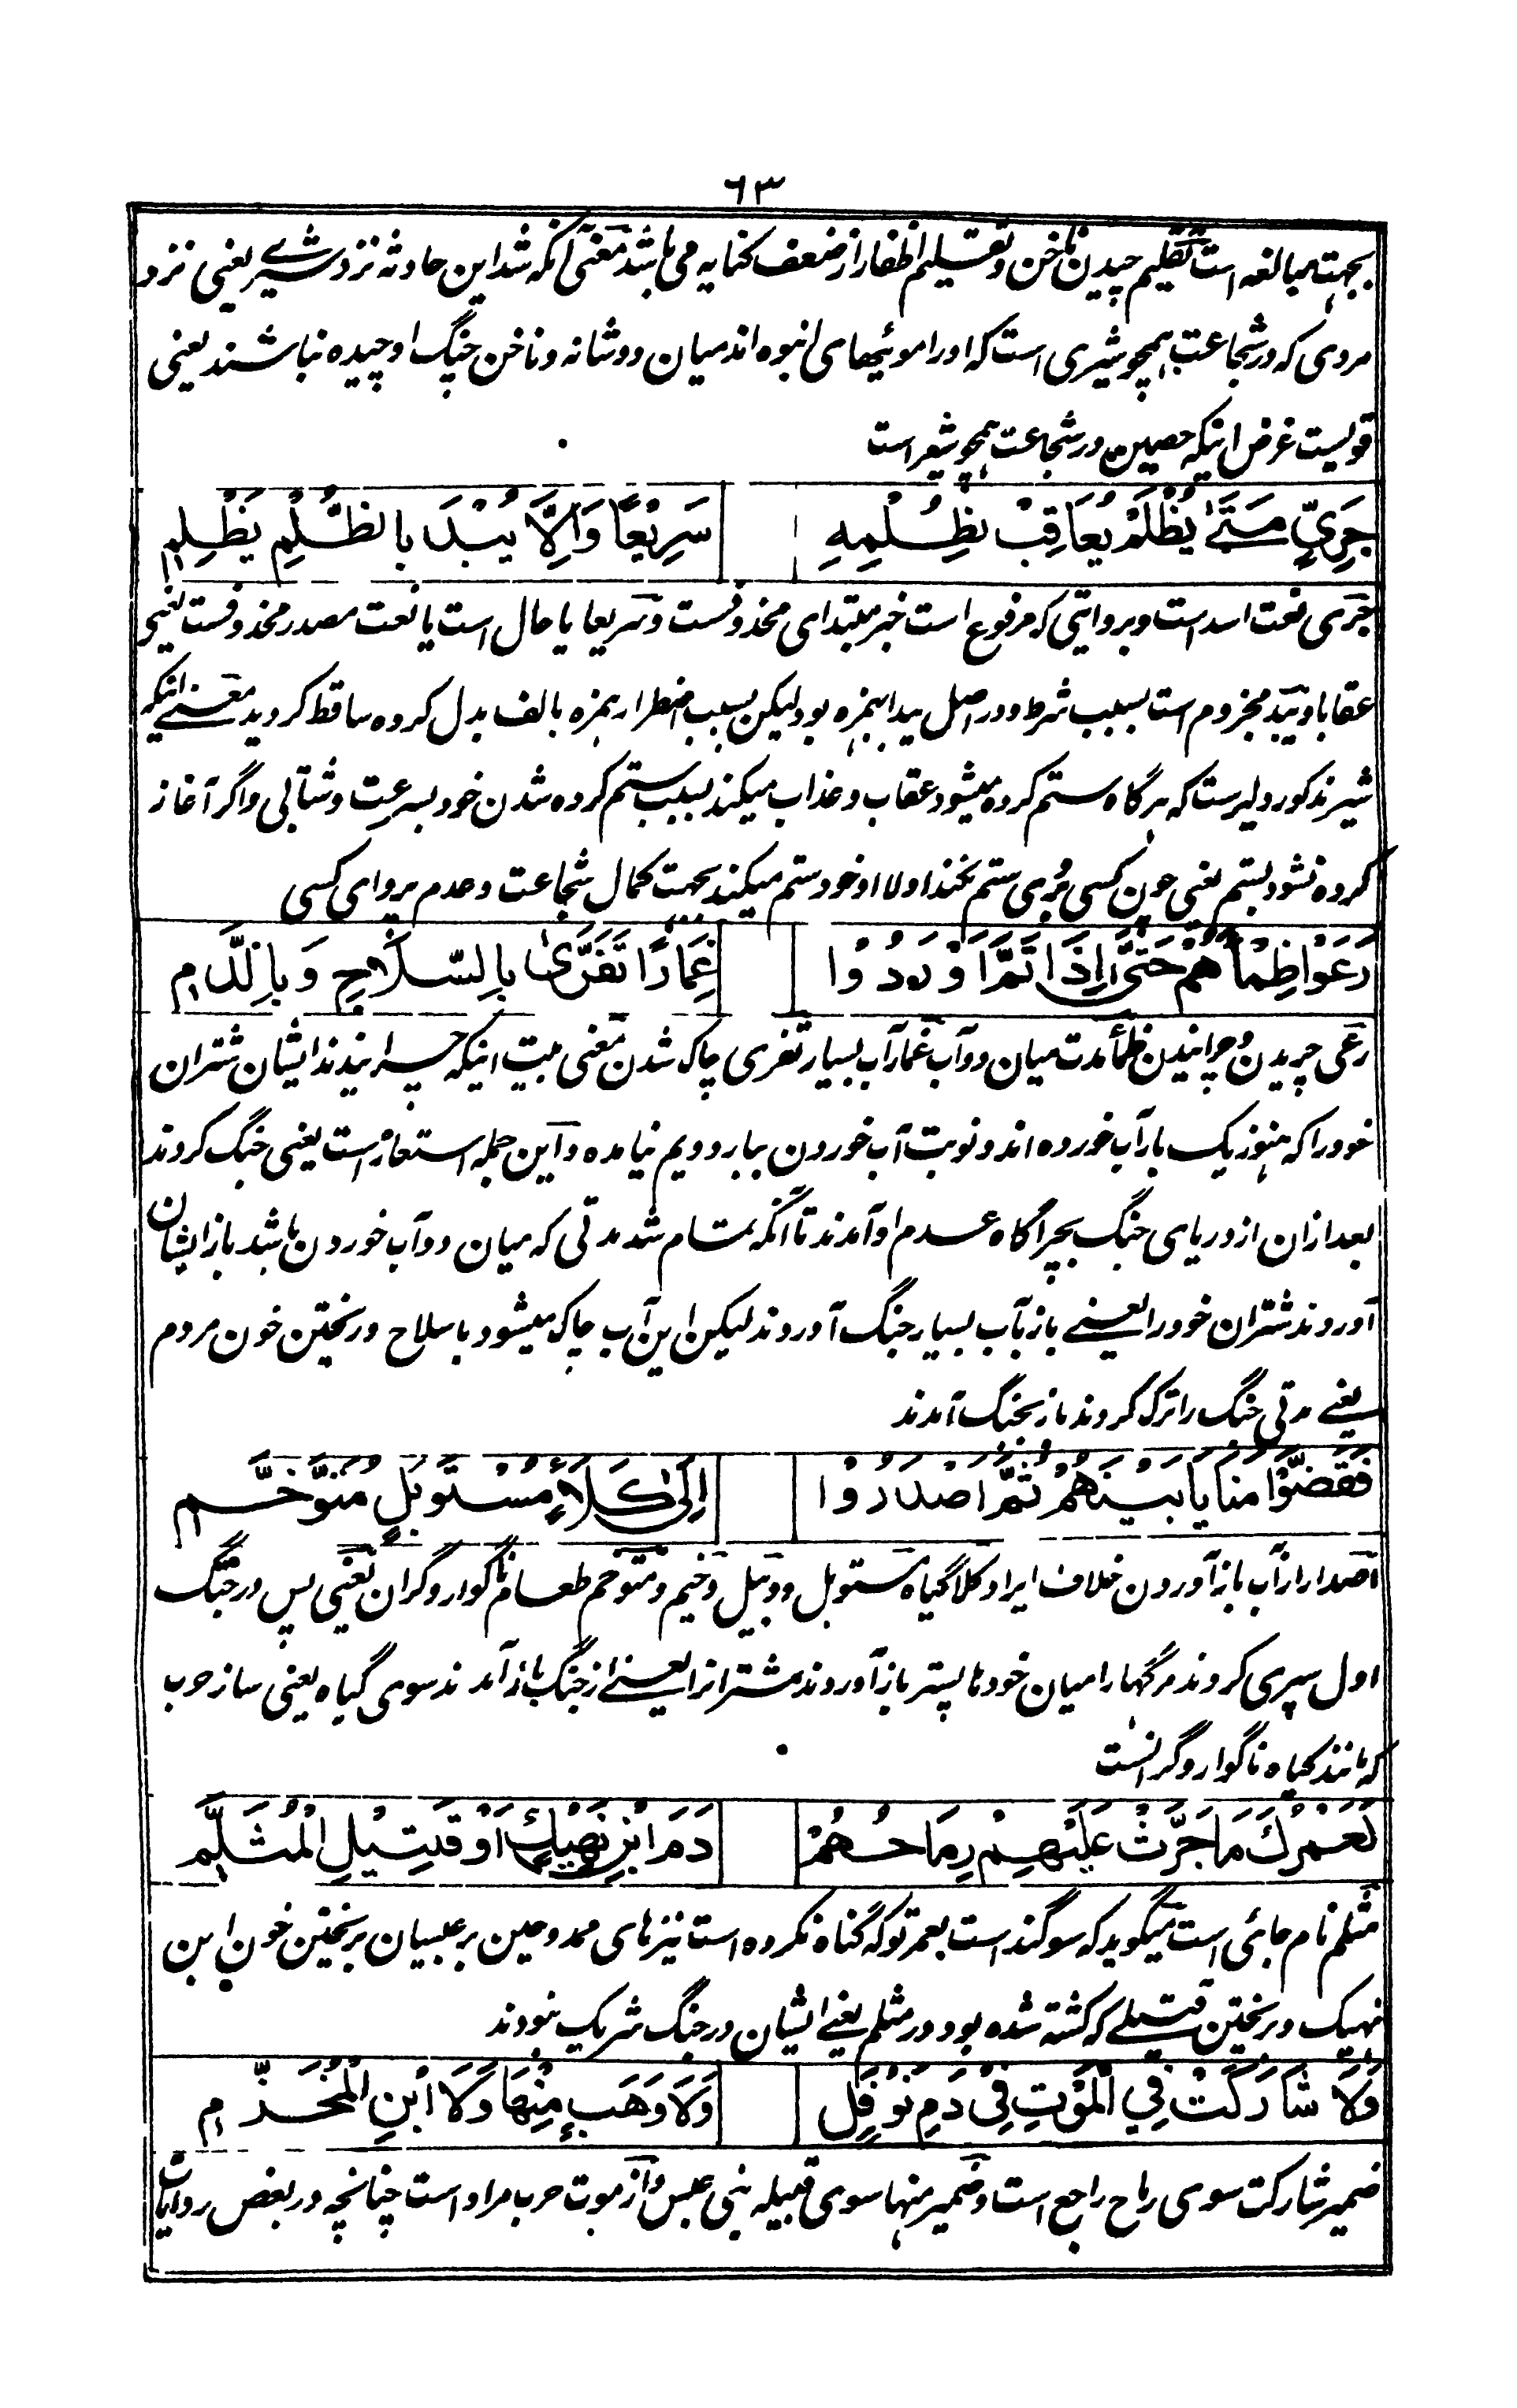 ٦٣
بجهت مبالغه است تقلیم چیدن ناخن و تقلیم اظفار از ضعف کنایه می باشد معنی آنکه شد این حادثه نزد شیرے یعنی نزد
مردی که در شجاعت همچو شیری است که او را موئیهای انبوه اند میان دو شانه و ناخن چنگ او چیده نباشند یعنی
قولیست غرض اینکه حصین در شجاعت همچو شیر است
جَرِيٍّ مَتىٰ يُظْلَمْ يُعَاقِبْ بِظُلْمِهِ سَرِيْعًا وَاِلَّا يُبْدَ بِالظُّلْمِ يَظْلِمِ
جری نعت اسد است و بروایتی که مرفوع است خبر مبتدای محذوفست و سریعا یا حال است یا نعت مصدر محذوفست یعنی
عقابا و یبد مجزوم است بسبب شرط و در اصل یبدا بهمزه بود لیکن بسبب اضطرار همزه بالف بدل کرده ساقط کردید معنے اینکه
شیر مذکور دلیرست که هرگاه ستم کرده میشود عقاب و عذاب میکند بسبب ستم کرده شدن خود بسرعت و شتابی و اگر آغاز
کرده نشود بستم یعنی چون کسی بروی ستم نکند اولا او خود ستم میکند بجهت کمال شجاعت و عدم پروای کسی
رَعَوْا ظِمْأَهُمْ حَتَّى اِذَا تَمَّ اَوْرَدُوْا غِمَارًا تَفَرَّىٰ بِالسِّلَاحِ وَبِالدَّمِ
رعی چریدن و چرانیدن ظمأ مدت میان دو آب غمار آب بسیار تفری چاک شدن معنی بیت اینکه چرانیدند ایشان شتران
خود را که هنوز یک بار آب خورده اند و نوبت آب خوردن ببار دویم نیامده و این جمله استعاره است یعنی جنگ کردند
بعد ازان از دریای جنگ بچراگاه عدم او آمدند تا آنکه تمام شد مدتی که میان دو آب خوردن باشد باز ایشان
آوردند شتران خود را یعنے باز بآب بسیار جنگ آوردند لیکن این آب چاک میشود با سلاح و ریختن خون مردم
یعنے مدتی جنگ را ترک کردند باز بجنگ آمدند
فَقَضَّوْا مَنَايَا بَيْنَهُمْ ثُمَّ اَصْدَرُوْا اِلىٰ كَلَاءٍ مُسْتَوْبَلٍ مُتَوَخَّمِ
اصدار از آب باز آوردن خلاف ایراد کلا گیاه مستوبل و وبیل و وخیم و متوخم طعام ناگوار و گران یعنی پس در جنگ
اول سپری کردند مرگها را میان خودها پستر باز آوردند مشترانرا یعنے از جنگ باز آمدند سوی گیاه یعنی ساز حرب
که مانند گیاه ناگوار و گرانست
لَعَمْرُكَ مَا جَرَّتْ عَلَيْهِمْ رِمَاحُهُمْ دَمَ ابْنِ نَهِيْكٍ اَوْ قَتِيْلِ الْمُثَلَّمِ
مثلم نام جائی است میگوید که سوگند است بعمر تو که گناه نکرده است نیزهای ممدوحین بر عبسیان بریختن خون ابن
نهیک و بریختن قتیلے که کشته شده بود در مثلم یعنے ایشان در جنگ شریک نبودند
وَلَا شَارَكَتْ فِي الْمَوْتِ فِيْ دَمِ نَوْفَلٍ وَلَا وَهَبٍ مِنْهَا وَلَا ابْنِ الْمُخَذَّمِ
ضمیر شارکت سوی رماح راجع است و ضمیر منها سوی قبیله بنی عبس و از موت حرب مراد است چنانچه در بعض روایات